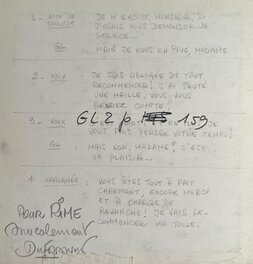 1 - VOIX DE COULISSE : JE M'EXCUSE MONSIEUR, SI
J'OSAIS VOUS DEMANDER UN
SERVICE...
GL : MAIS JE VOUS EN PRIE, MADAME.
2 - VOIX : JE SUIS OBLIGÉE DE TOUT
RECOMMENCER! J'AI SAUTÉ
UNE MAILLE, VOUS VOUS
RENDEZ COMPTE!
3 - VOIX :
GL. 2 p 159
VOUS FAIS PERDRE VOTRE TEMPS!
GL : MAIS NON, MADAME! C'EST
UN PLAISIR...
4 ARAIGNÉE : VOUS ÊTES TOUT À FAIT
CHARMANT, ENCORE MERCI
ET À CHARGE DE
REVANCHE! JE VAIS RE-
COMMENCER MA TOILE.
pour
amicalement